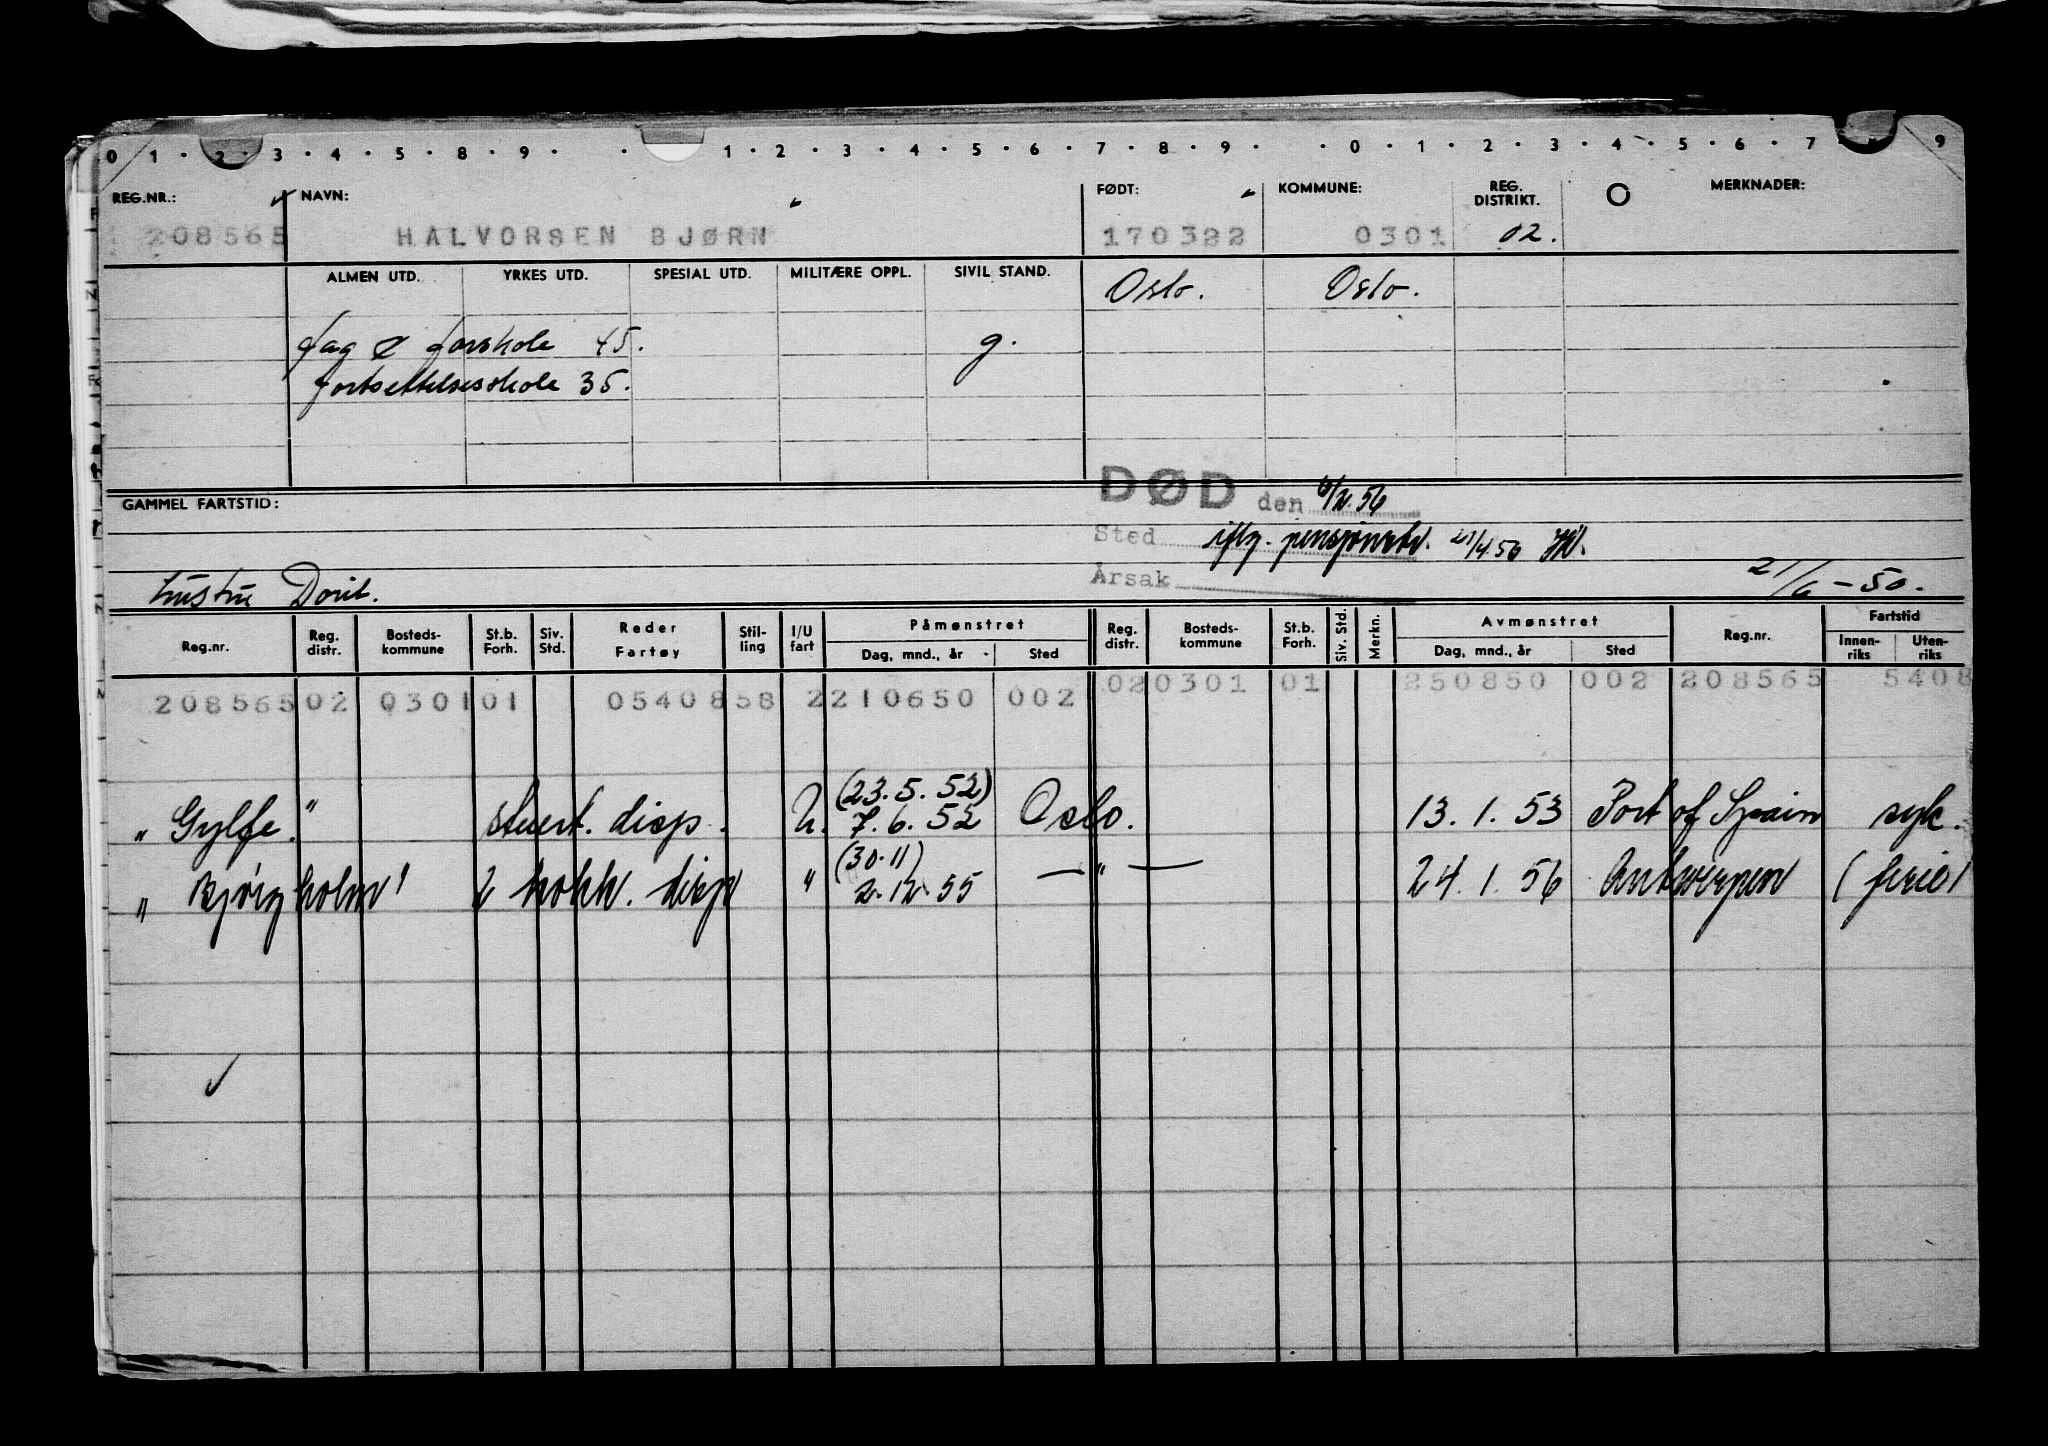 0 1 · 2 · 3 · 4 · 5 · 8 · 9 · · 1 · 2 · 3 · 4 · 5 · 6 · 7 · 8 · 9 · · 0 · 1 · 2 · 3 · 4 · 5 · 6 · 7 · 9
REG.NR.: NAVN: FØDT: KOMMUNE: REG. DISTRIKT. O MERKNADER:
208565 HALVORSEN BJØRN 170322 0301 02.
ALMEN UTD. YRKES UTD. SPESIAL UTD. MILITÆRE OPPL. SIVIL STAND. Oslo. Oslo.
fag & forskole 45. g.
fortsettelsesskole 35.
GAMMEL FARTSTID: DØD den 6/2.56
Sted iflg. pensjonstr. 27/4.56
Årsak
hustru Dorit. 21/6-50.
Reg.nr. Reg. distr. Bosteds-kommune St.b. Forh. Siv. Std. Reder Fartøy Stil-ling I/U fart Påmønstret Dag, mnd., år Sted Reg. distr. Bosteds-kommune St.b. Forh. Siv. Std. Merkn. Avmønstret Dag, mnd., år Sted Reg.nr. Fartstid Innen-riks Uten-riks
208565 02 0301 01 0540858 2 210650 002 02 0301 01 250850 002 208565 5408
(23.5.52)
„Gylfe." stuert. disp. U. 7.6.52 Oslo. 13.1.53 Port of Spain syk.
(30.11)
„Bjørgholm" 2 kokk. disp " 2.12.55 — " — 24.1.56 Antwerpen (ferie)